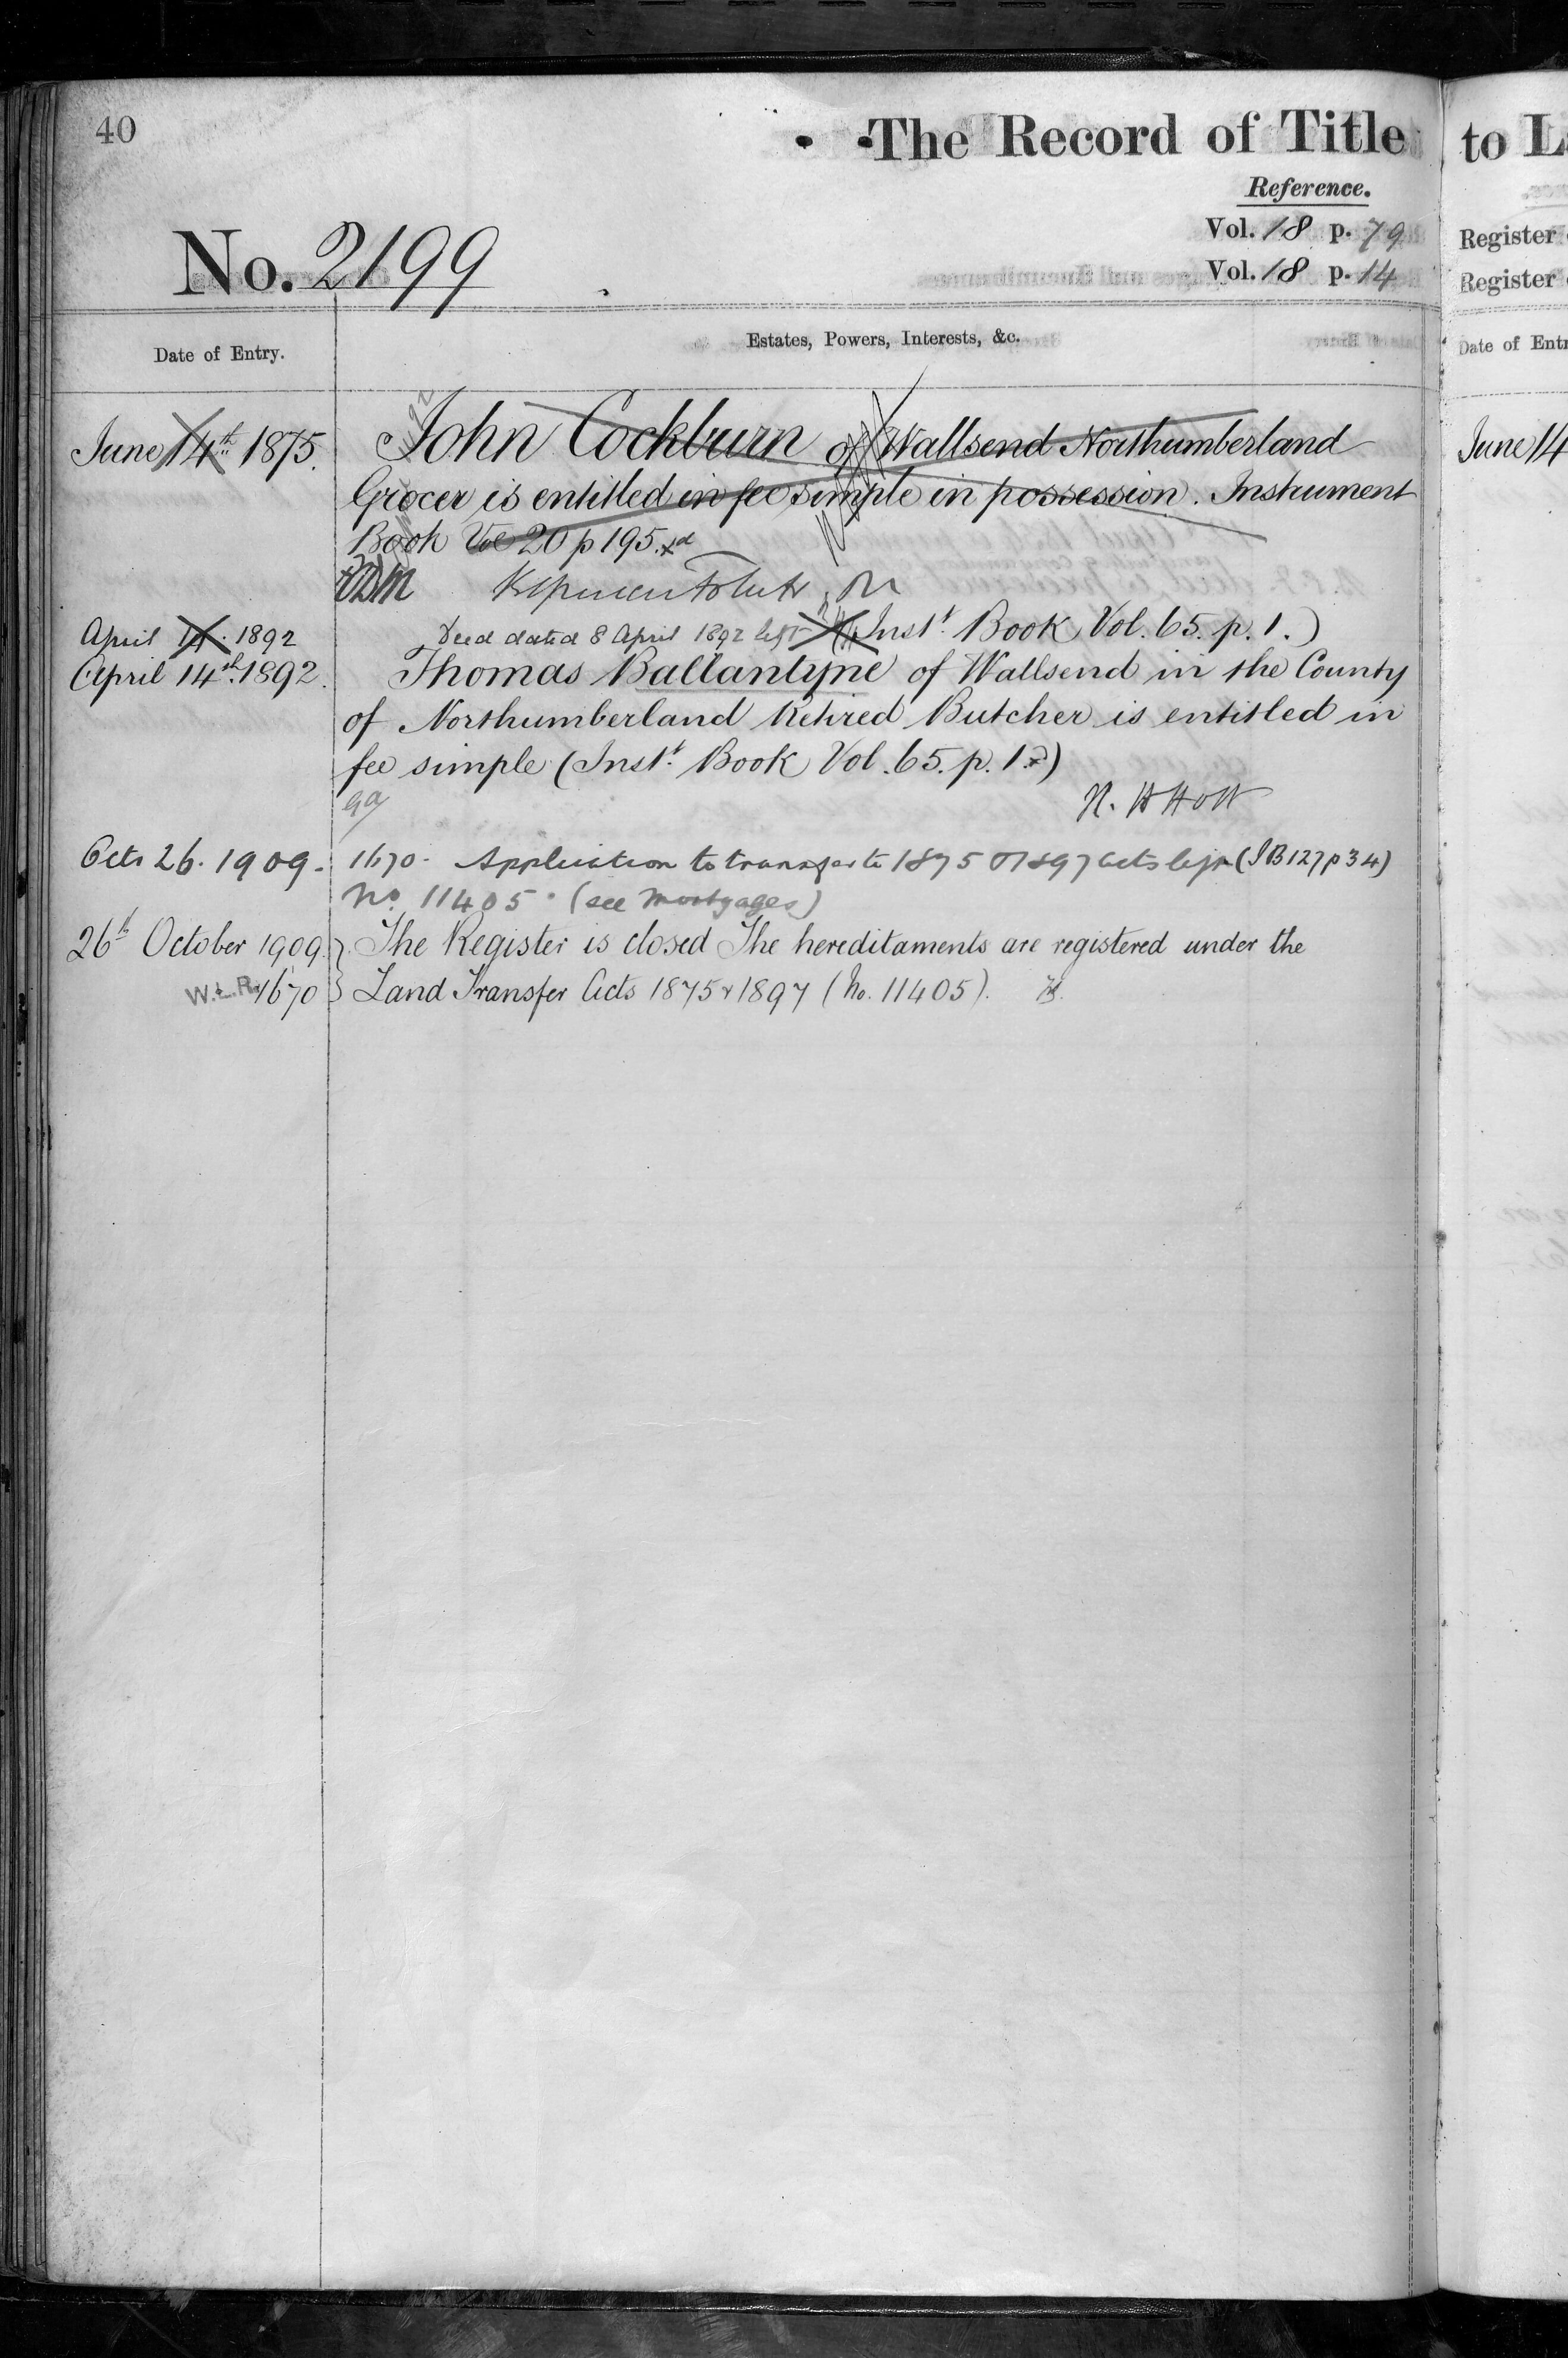 40
The Record of Title to L
Reference.
Vol. 18 p. 79
Register
No. 2199
Vol. 18 p. 14
Register
Date of Entry.
Estates, Powers, Interests, &c.
Date of Ent
June 14th 1875.
John Cockburn of Wallsend Northumberland
June 14
Grocer is entitled in fee simple in possession. Instrument
Book Vol 20 p 195.
April 14. 1892
Deed dated 8 April 1892 left (Inst. Book Vol. 65. p. 1.)
April 14th. 1892.
Thomas Ballantyne of Wallsend in the County
of Northumberland Retired Butcher is entitled in
fee simple (Inst. Book Vol. 65. p. 1.)
N. H Holt
Octr 26. 1909.
1670. Application to transfer to 1875 & 1897 Acts left (IB 127 p 34)
No. 11405. (see Mortgages)
26th October 1909.
The Register is closed The hereditaments are registered under the
W.L.R. 1670
Land Transfer Acts 1875 & 1897 (No. 11405).